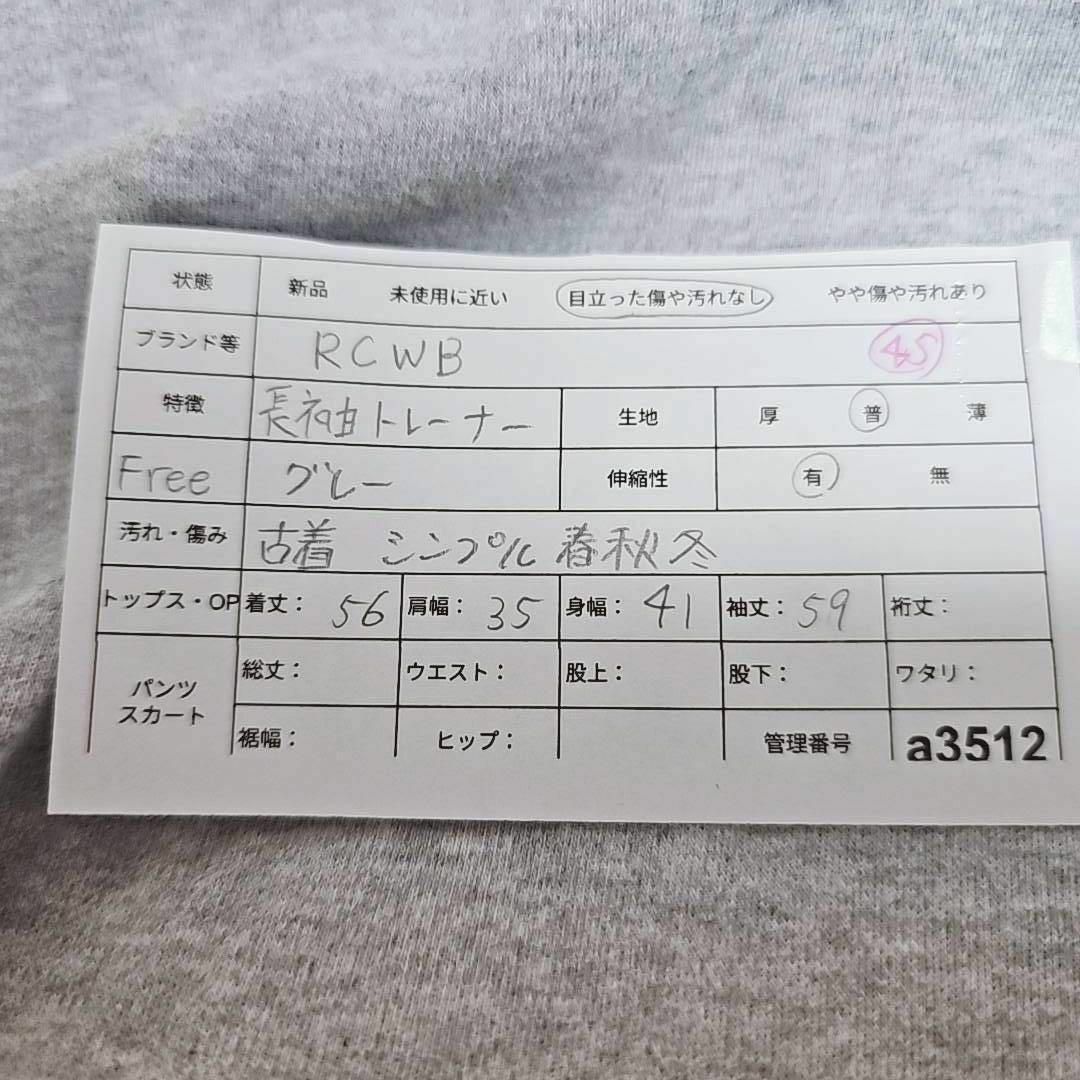 状態 新品 未使用に近い 目立った傷や汚れなし やや傷や汚れあり
ブランド等 RCWB 45
特徴 長袖トレーナー 生地 厚 普 薄
Free グレー 伸縮性 有 無
汚れ・傷み 古着 シンプル 春秋冬
トップス・OP 着丈: 56 肩幅: 35 身幅: 41 袖丈: 59 裄丈:
パンツ スカート 総丈: ウエスト: 股上: 股下: ワタリ:
裾幅: ヒップ: 管理番号 a3512